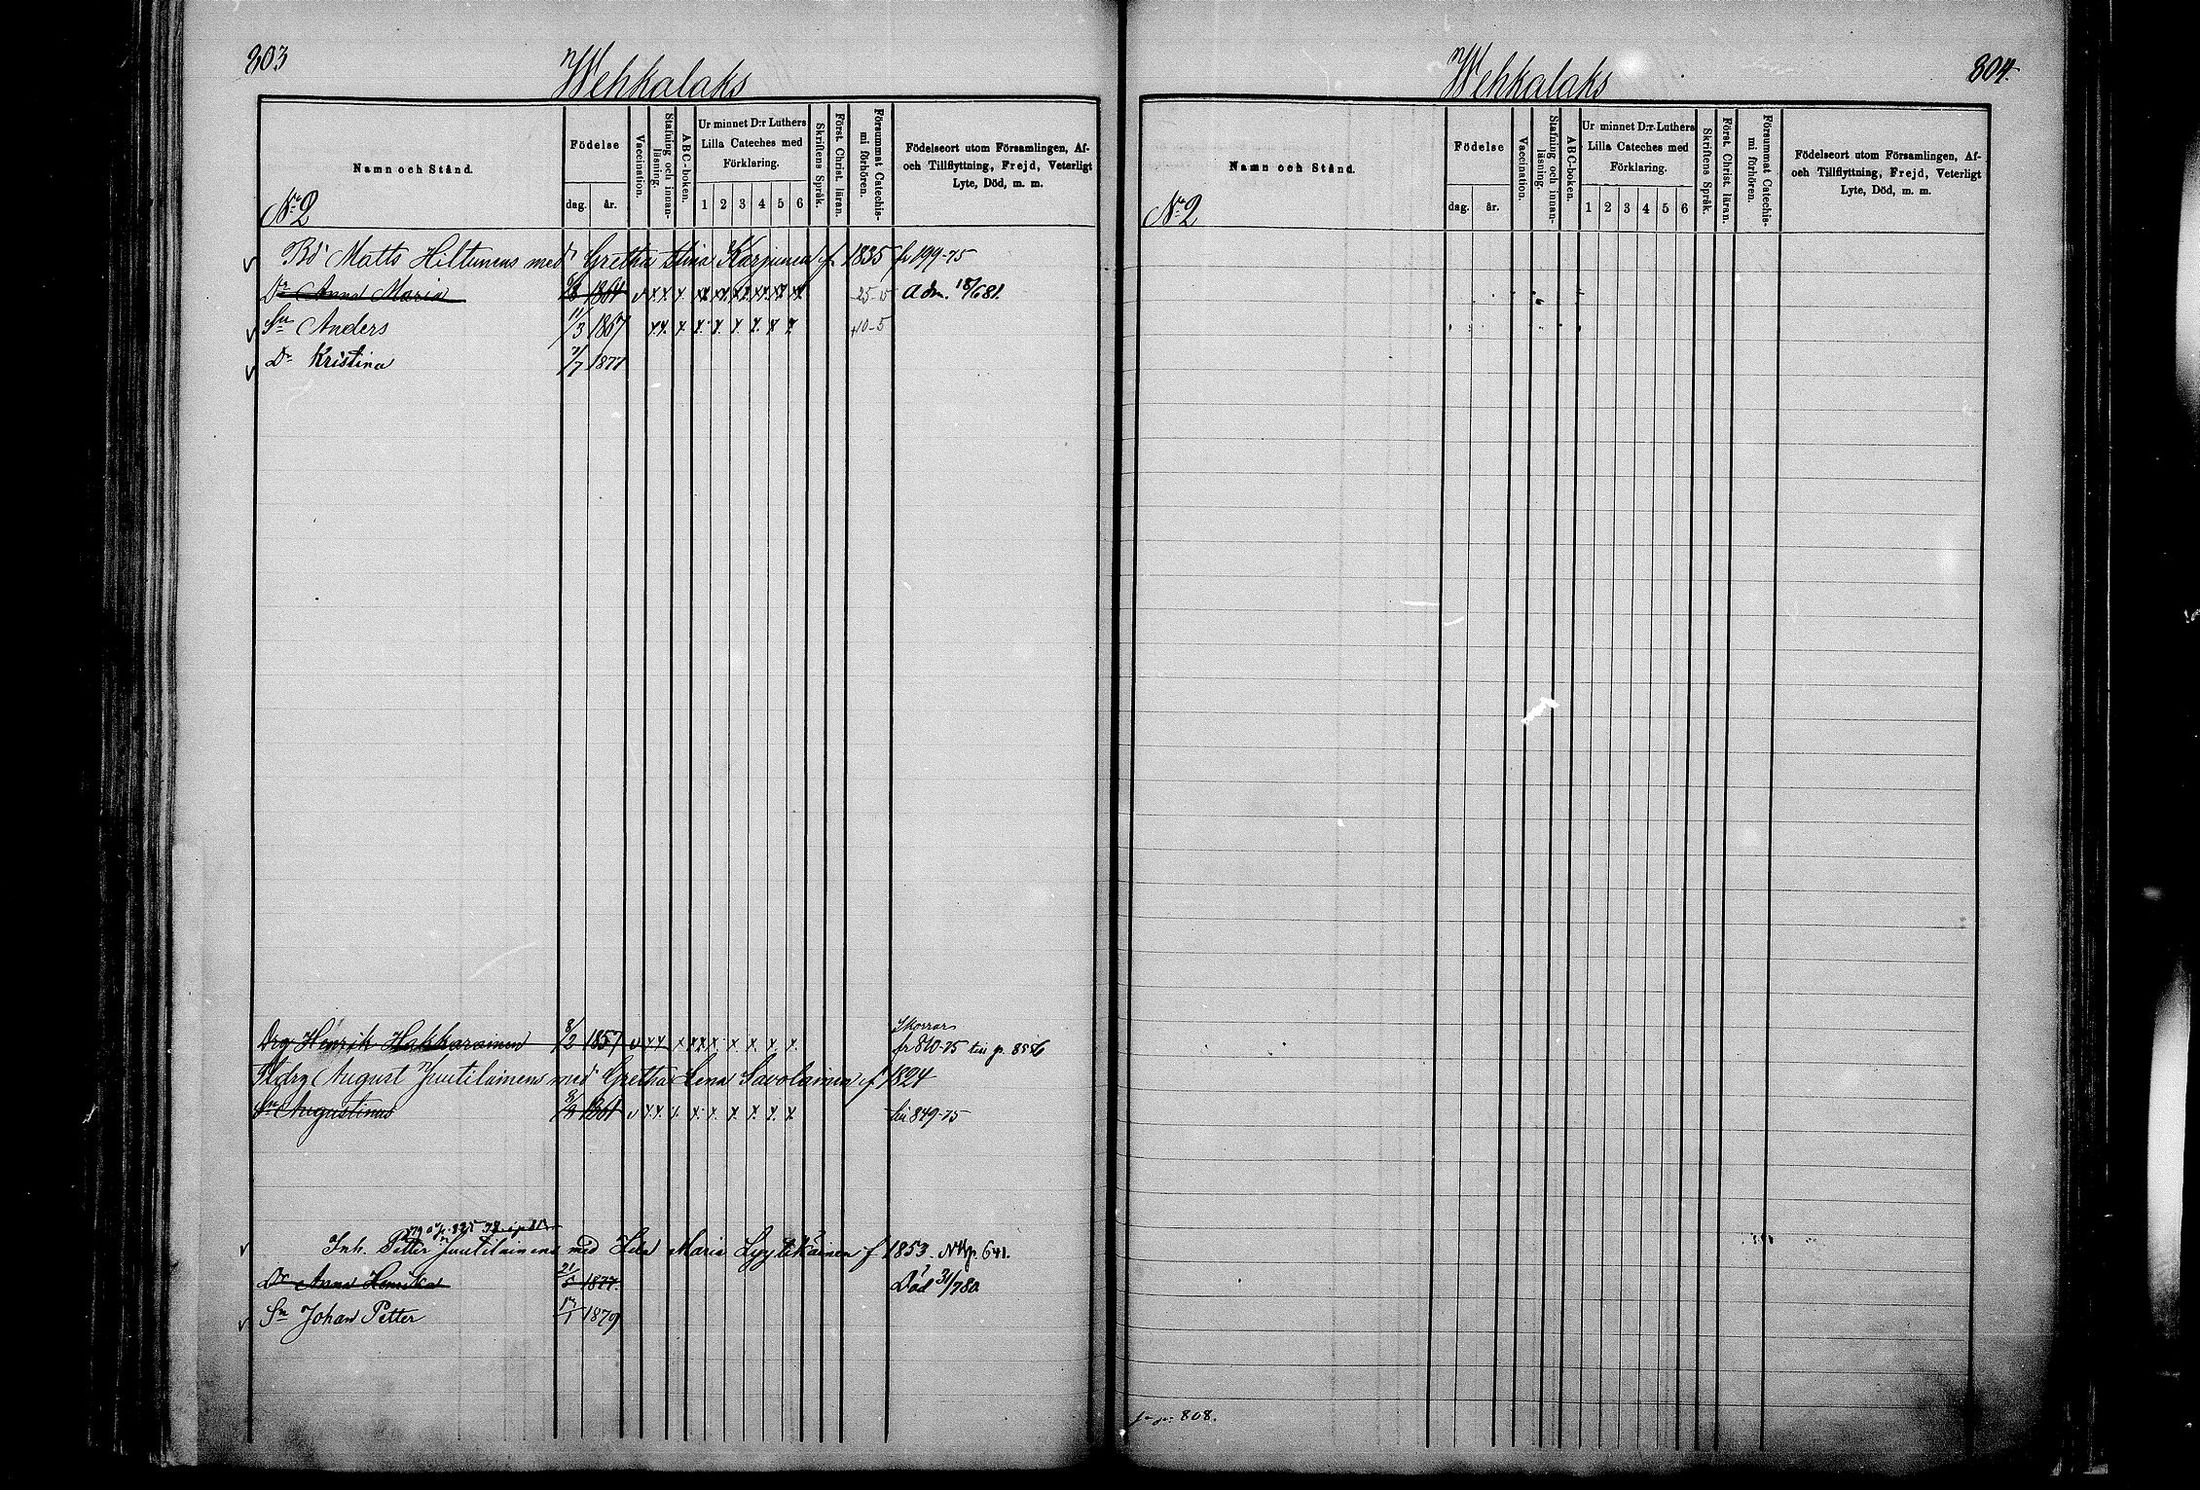 803
Wehkalaks
Namn och Stånd.
Födelse
dag. år.
Vaccination.
Stafning och innan-
läsning.
ABC-boken.
Ur minnet D:r Luthers
Lilla Cateches med
Förklaring.
1 2 3 4 5 6
Skriftens Språk.
Först. Christ. läran.
Försummat Catechis-
mi förhören.
Födelseort utom Församlingen, Af-
och Tillflyttning, Frejd, Veterligt
Lyte, Död, m. m.
No 2
Bd Matts Hiltunens med Gretha Stina Karjunen f. 1835 fr 199-75
Dr Anna Maria 1861 v x x x x x x x x x Adm. 18/6 81.
Sn Anders 11/3 1867 x x x x x x x x x 10-5
Dr Kristina 7/7 1877
Drg Henrik Hakkarainen 8/2 1857 v x x x x x x x x x fr 810-75
August Juutilainens med Gretha Lena Savolainen f 1824
Sn Augustinus 1861 v x x x x x x x x x 849-75
Inh. Petter Juutilainens med Maria Lyytikäinen f 1853. p. 641.
Dr Anna Henrika 21/5 1877. Död 31/7 80
Sn Johan Petter 17/1 1879
Wehkalaks
804.
Namn och Stånd.
Födelse
dag. år.
Vaccination.
Stafning och innan-
läsning.
ABC-boken.
Ur minnet D:r Luthers
Lilla Cateches med
Förklaring.
1 2 3 4 5 6
Skriftens Språk.
Först. Christ. läran.
Försummat Catechis-
mi förhören.
Födelseort utom Församlingen, Af-
och Tillflyttning, Frejd, Veterligt
Lyte, Död, m. m.
No 2
808.